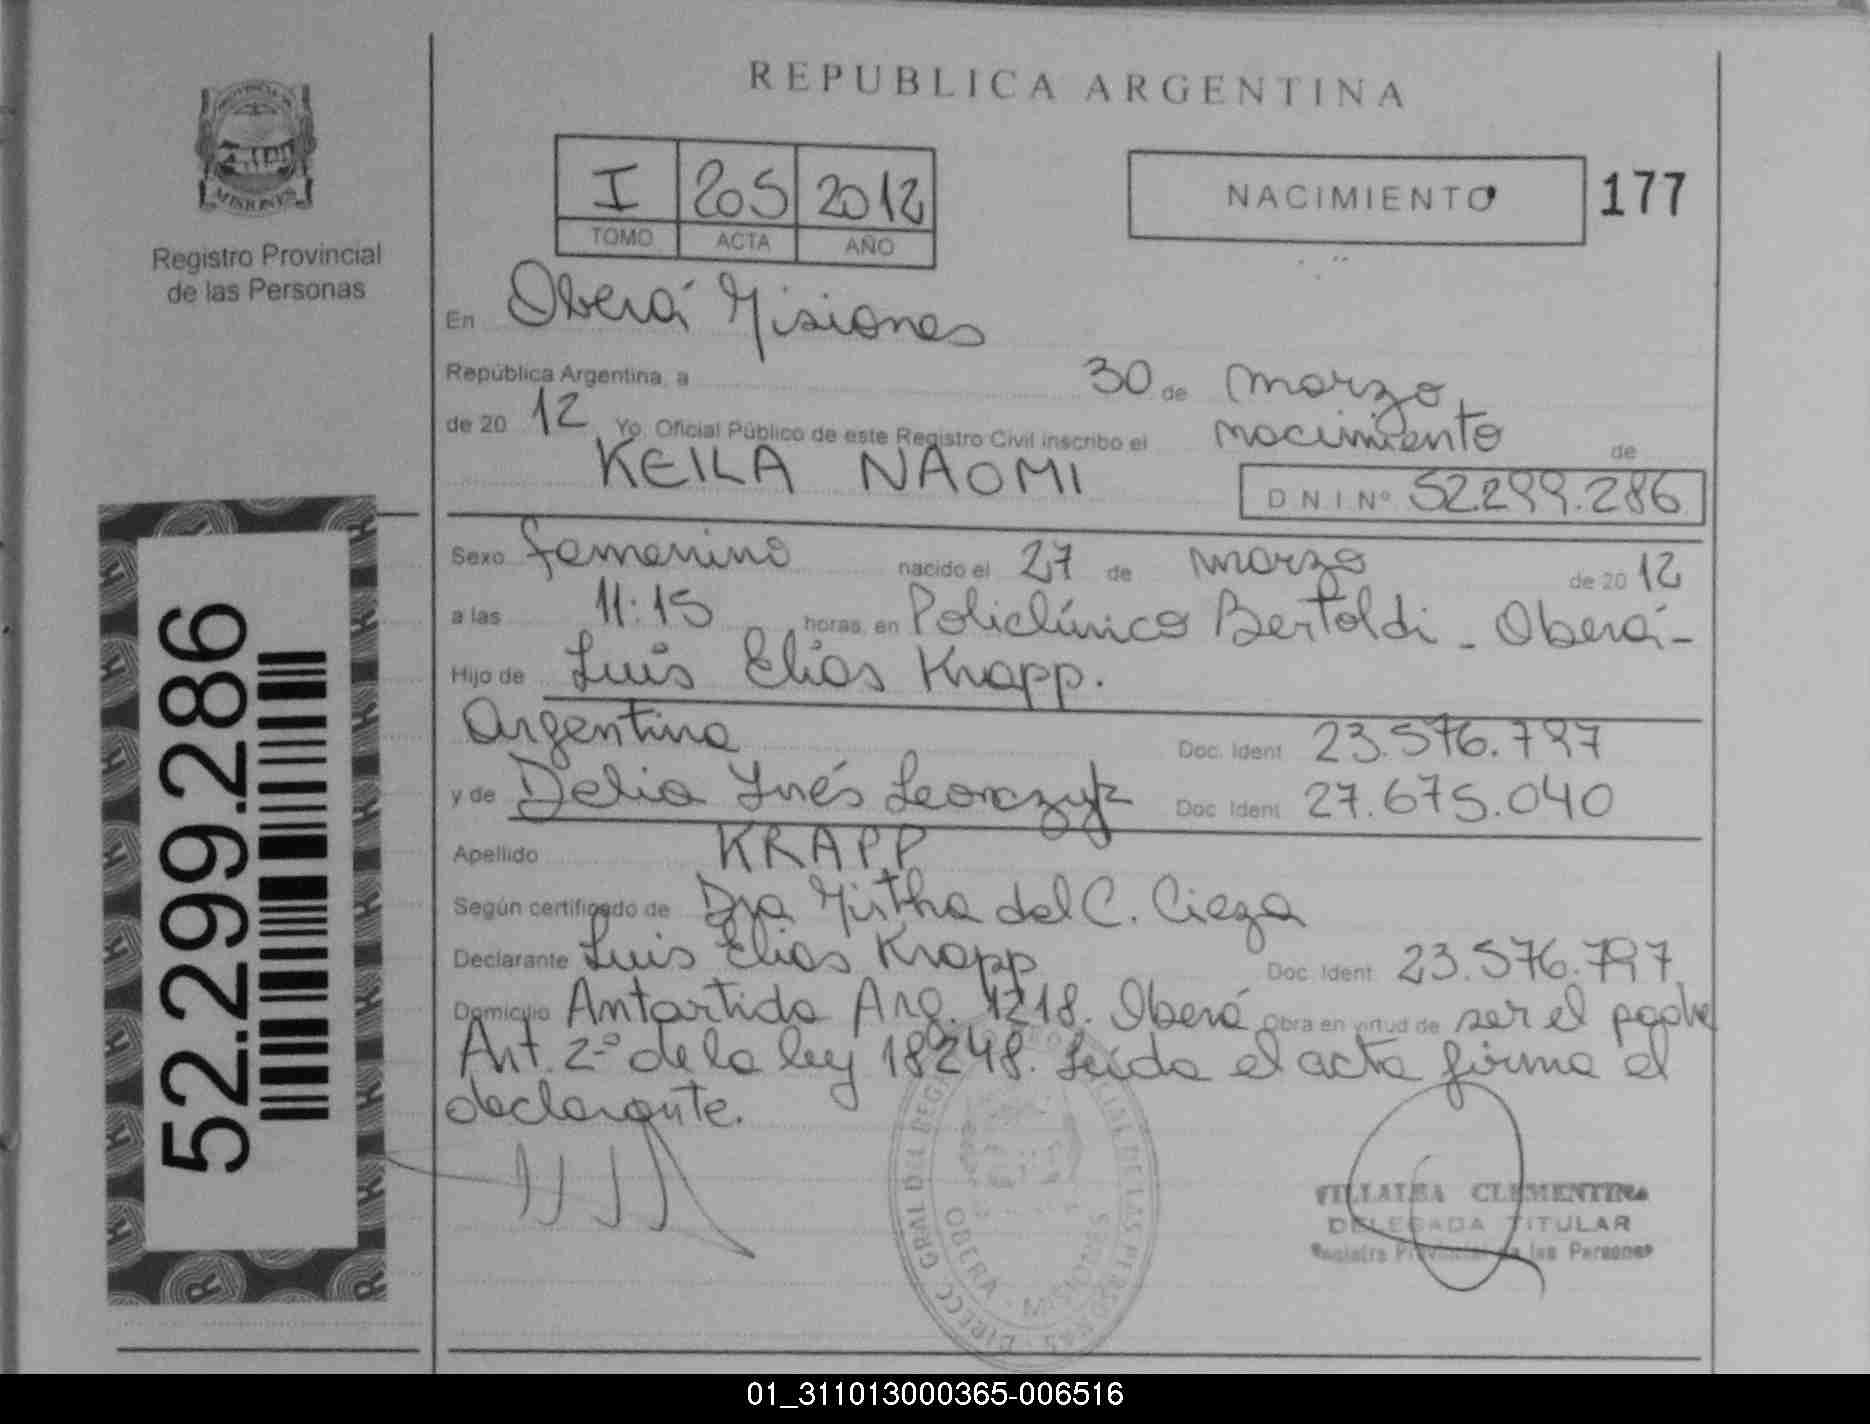 REPUBLICA ARGENTINA
PROVINCIA DE
MISIONES
Registro Provincial
de las Personas
I 205 2012
TOMO ACTA AÑO
NACIMIENTO 177
En Oberá Misiones
República Argentina, a 30 de marzo
de 20 12 Yo, Oficial Público de este Registro Civil inscribo el nacimiento de
KEILA NAOMI D N.I. Nº 52.299.286
Sexo femenino nacido el 27 de marzo de 20 12
a las 11:15 horas, en Policlínico Bertoldi - Oberá -
Hijo de Luis Elias Krapp.
Argentina Doc. Ident 23.576.797
y de Delia Inés Leonczyk Doc. Ident 27.675.040
Apellido KRAPP
Según certificado de Dra Mirtha del C. Cieza
Declarante Luis Elias Krapp Doc. Ident 23.576.797
Domicilio Antartida Arg. 1218. Oberá Obra en virtud de ser el padre
Art. 2º de la ley 18248. Leída el acta firma el
declarante.
52.299.286
DIRECC GRAL DEL REGISTRO PROVINCIAL DE LAS PERSONAS
OBERA - MISIONES
VILLALBA CLEMENTINA
DELEGADA TITULAR
Registro Provincial de las Personas
01_311013000365-006516